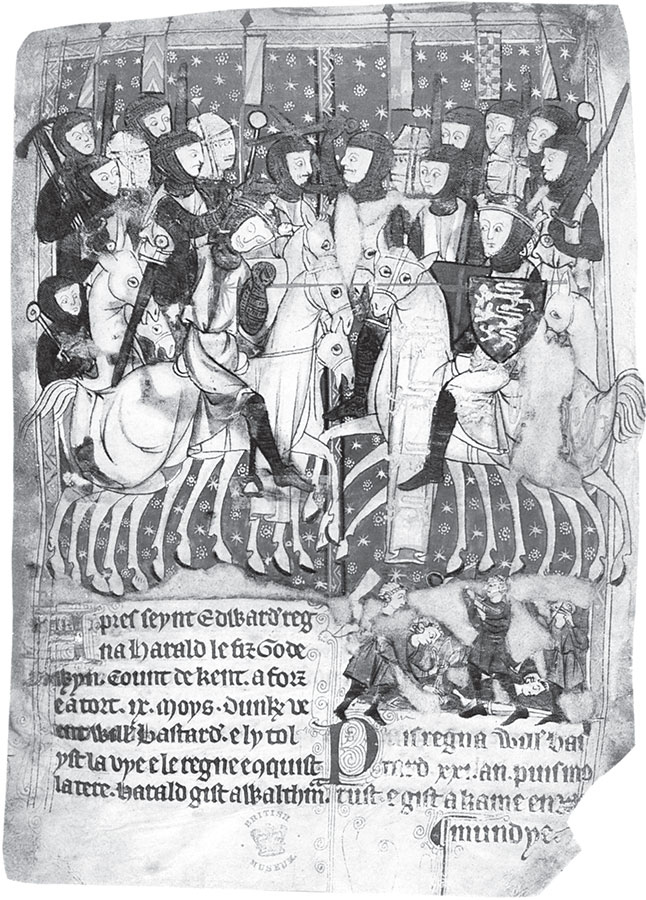 pres seynt Edward reg
na Harald le fiz Gode
wyn. Count de kent. a forz
e a tort. ix. moys. dunke ve
ent Will bastard. e ly tol
yst la vye e le regne e cnquist
la tere. Harald gist a Walthm.
Puis regna Will bas
tard xxi. an. puis mo
rust. e gist a kame en
mundye.
BRITISH
MUSEUM